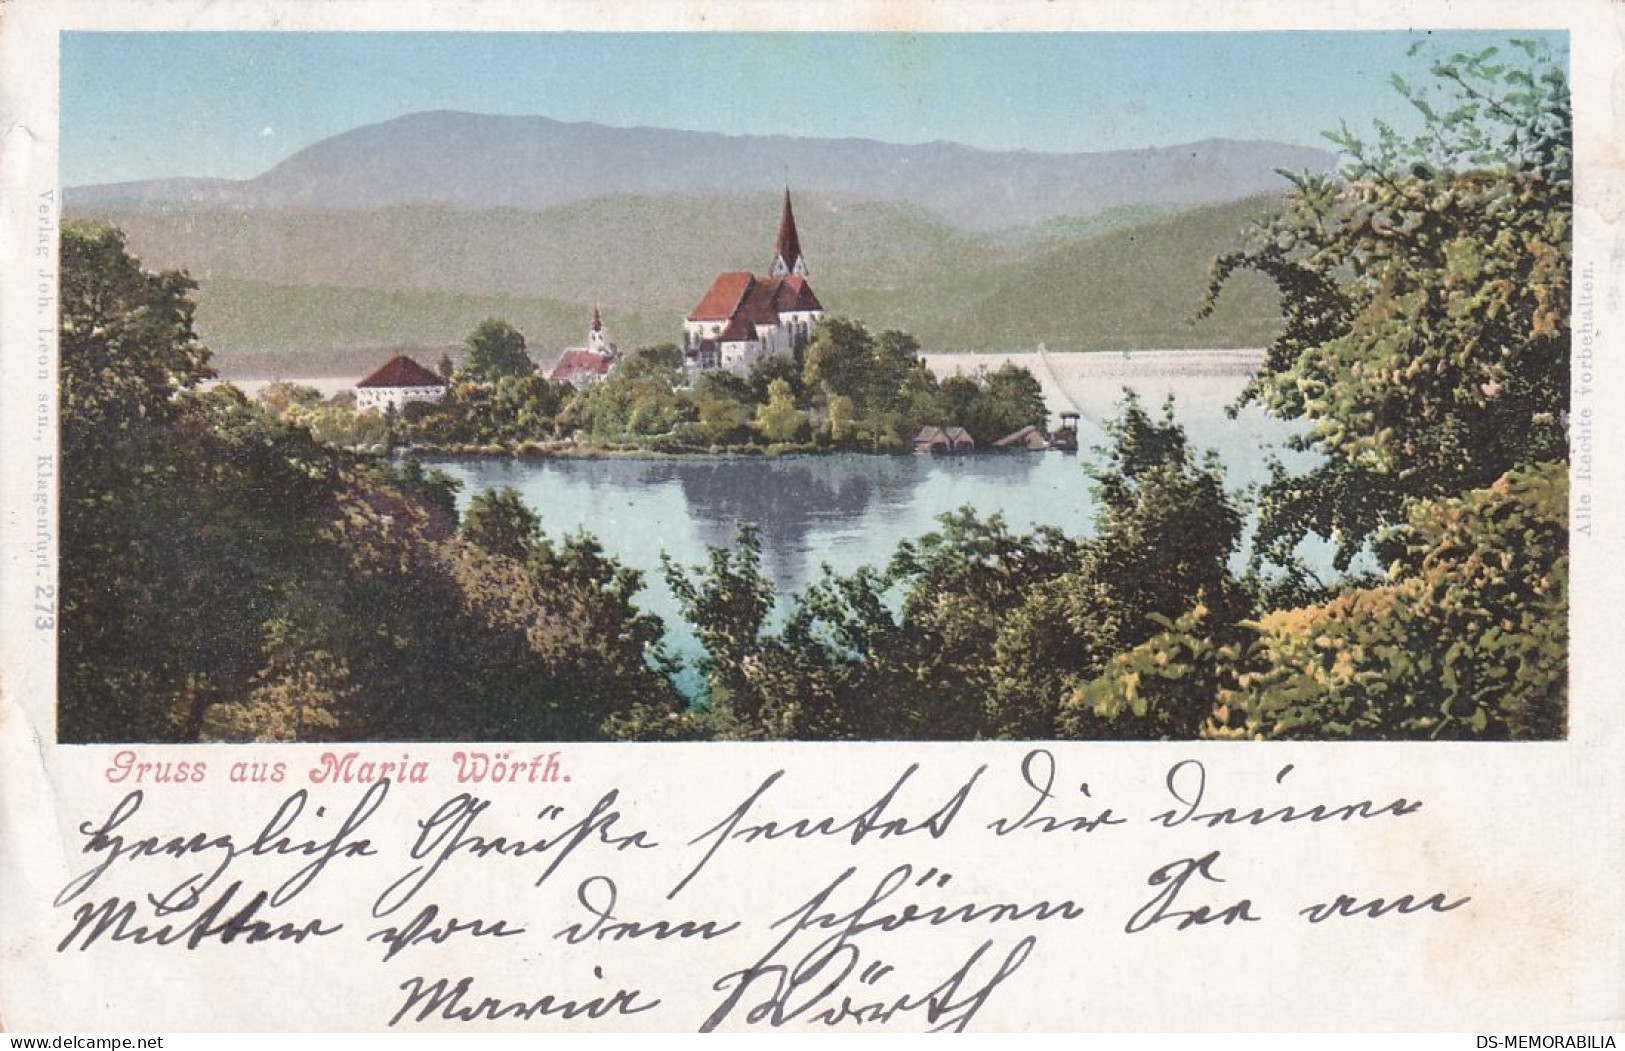 Verlag Joh. Leon sen., Klagenfurt. 273
Alle Rechte vorbehalten.
Gruss aus Maria Wörth.
Herzliche Grüße sentet dir deine
Mutter von dem schönen See am
Maria Wörth
delcampe.net
DS-MEMORABILIA